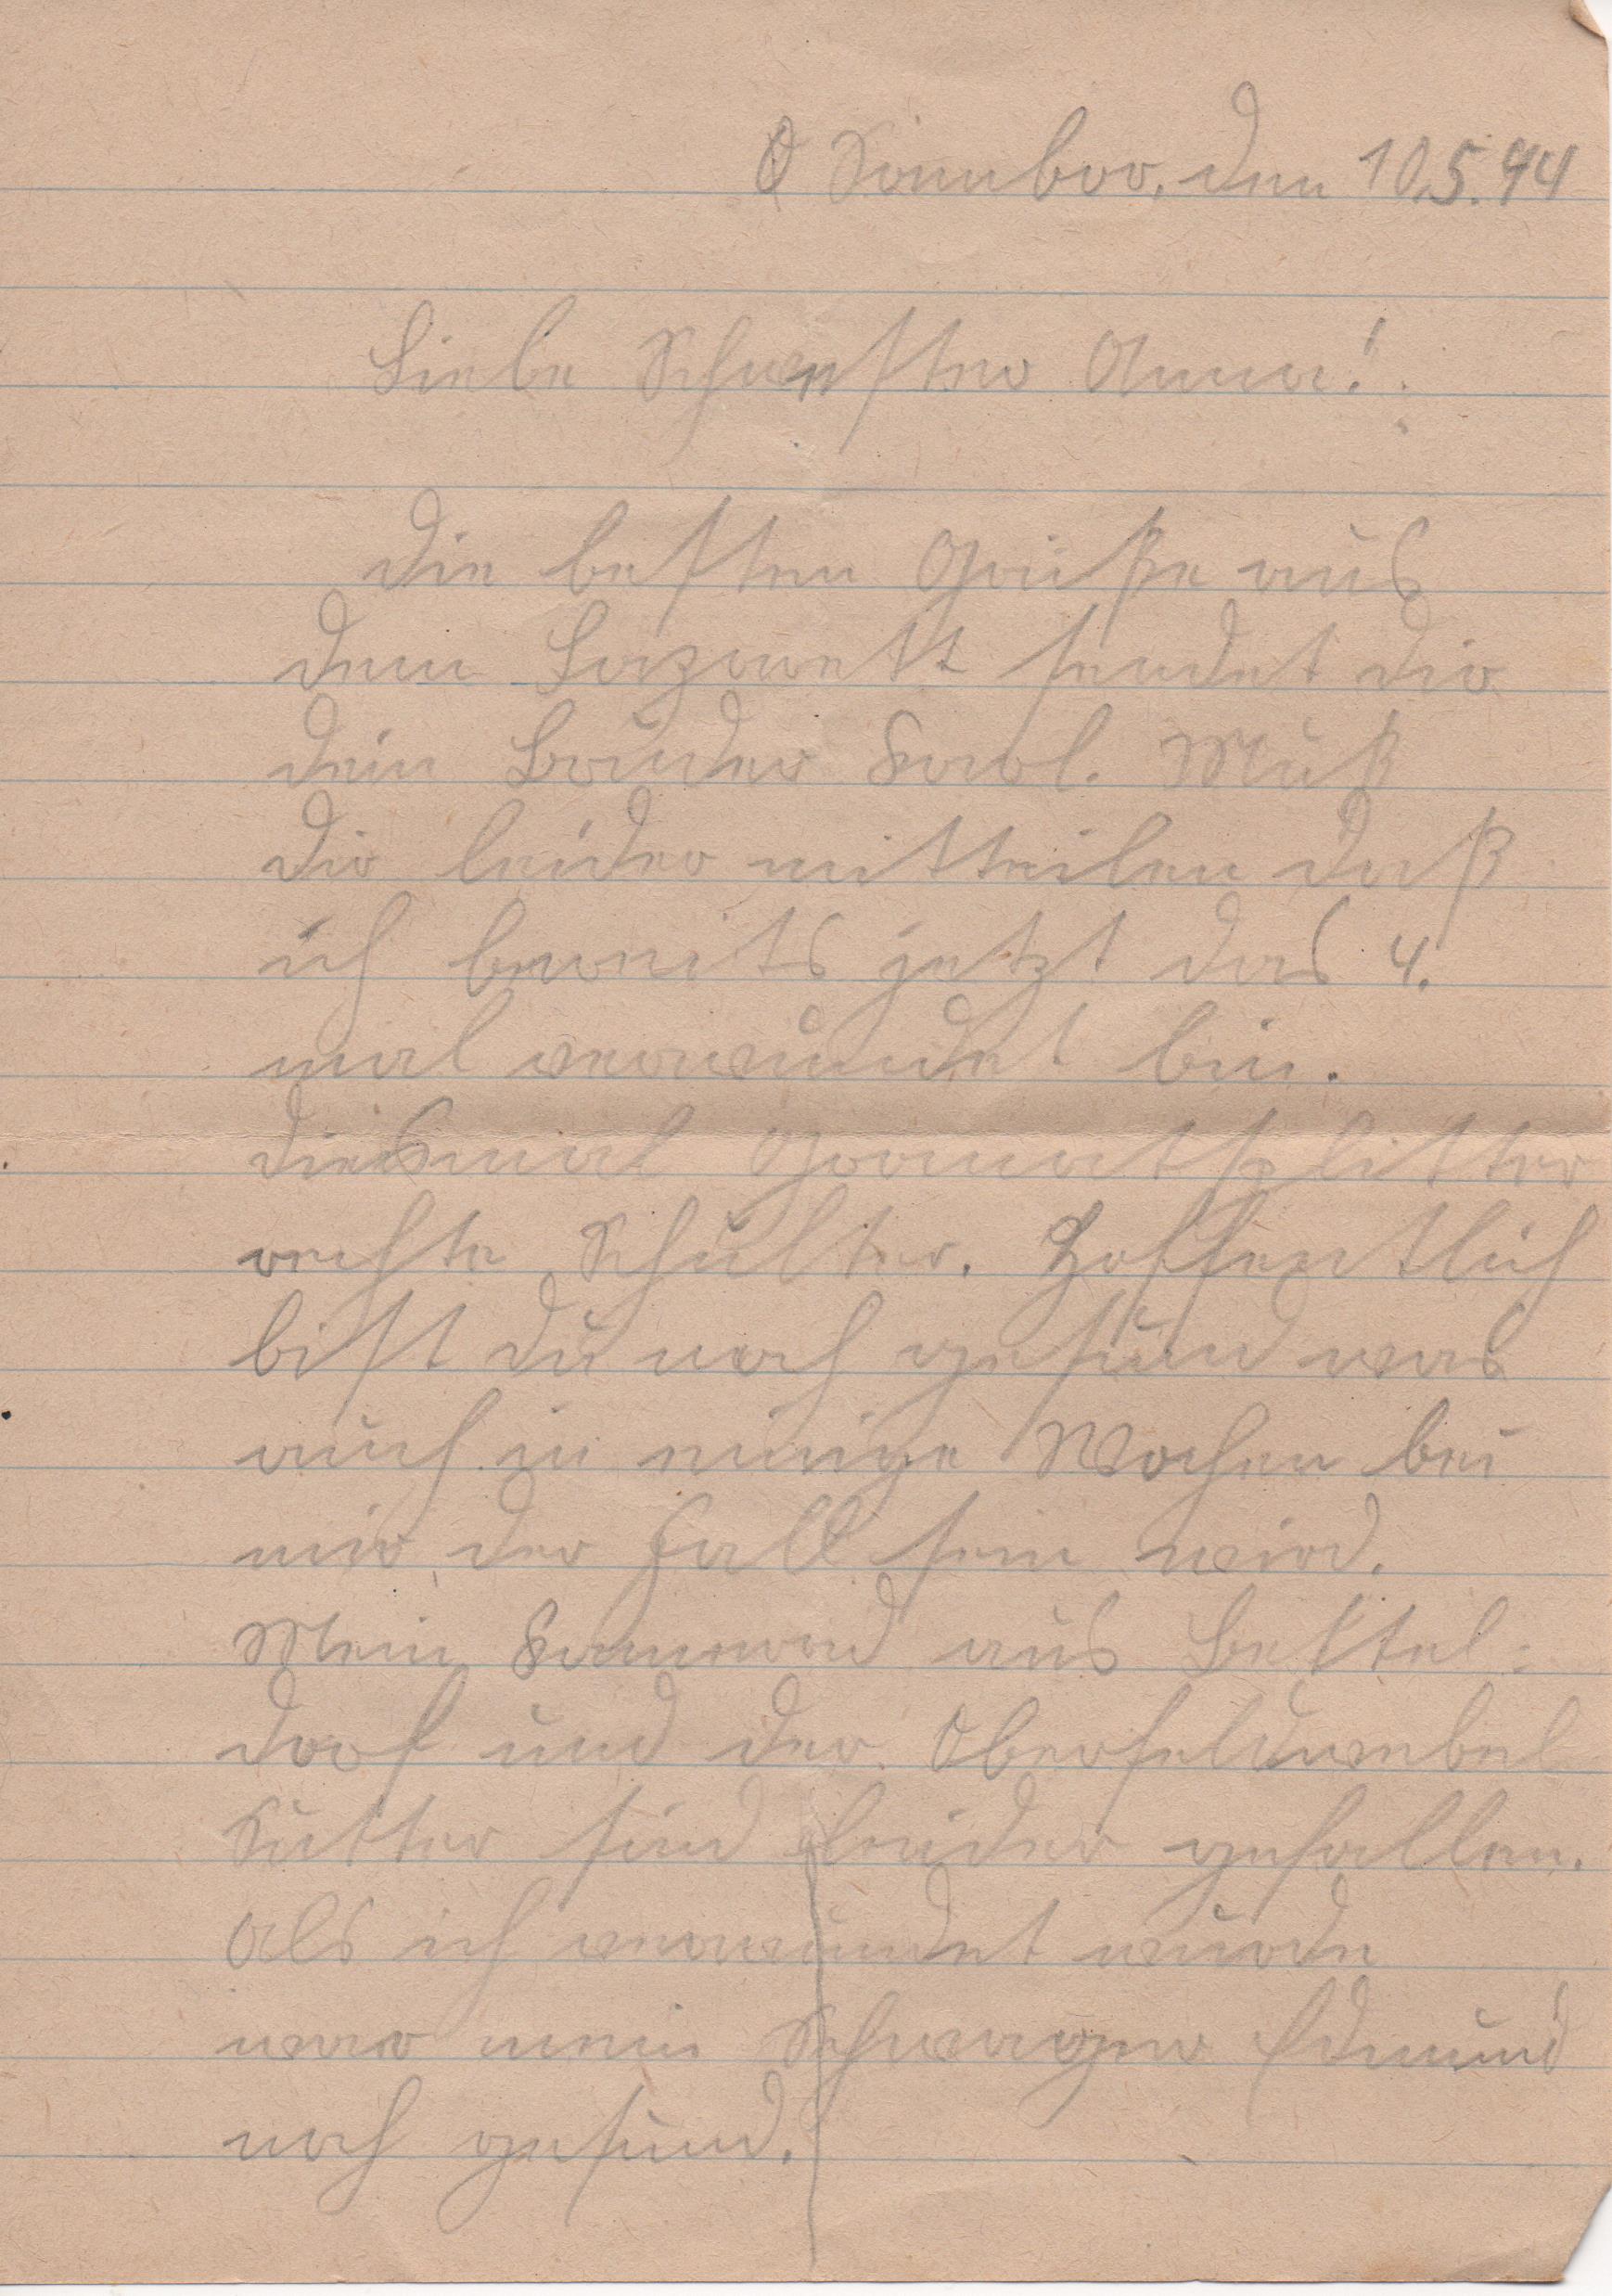 O Sombor, den 10.5.44
Liebe Schwester Anna!
Die besten Grüße aus
dem Lazarett sendet dir
dein Bruder Karl. Muß
dir leider mitteilen daß
ich bereits jetzt das 4.
mal verwundet bin.
Diesmal Granatsplitter
rechte Schulter. Hoffentlich
bist du noch gesund was
auch in einige Wochen bei
mir der Fall sein wird.
Mein Kamerad aus
dorf und der Oberfeldwebel
Sutter sind leider gefallen.
Als ich verwundet wurde
war mein Schwager Edmund
noch gesund.